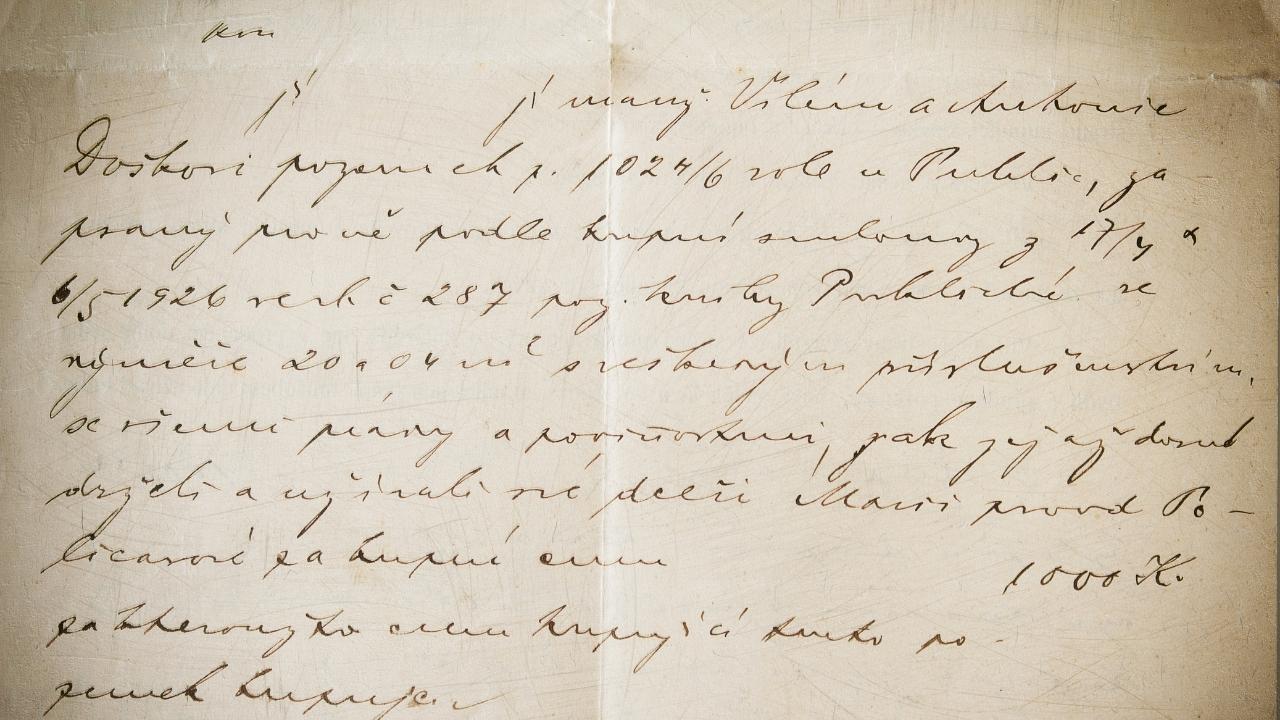 jí jí manž. Vilém a Antonie
Doškovi pozemek p. 1024/6 role v Public, za
psaný prově podle kupní smlouvy z 17/4 a
6/5 1926 č 287 poz. knihy Publické ve
výměře 20 a 04 m² s veškerým příslušenstvím,
se všemi právy a povinnostmi, jak jej až dosud
drželi a užívali své dceři Marii provd Po-
licarové za kupní cenu
1000 K.
za kteroužto cenu kupující tento po-
zemek kupuje.